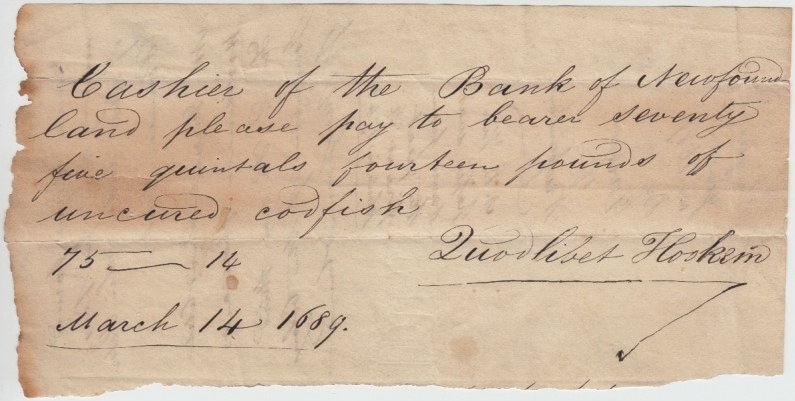 Cashier of the Bank of Newfound
land please pay to bearer seventy
five quintals fourteen pounds of
uncured codfish
75 — 14
Quodlibet Hoskem
March 14 1689.